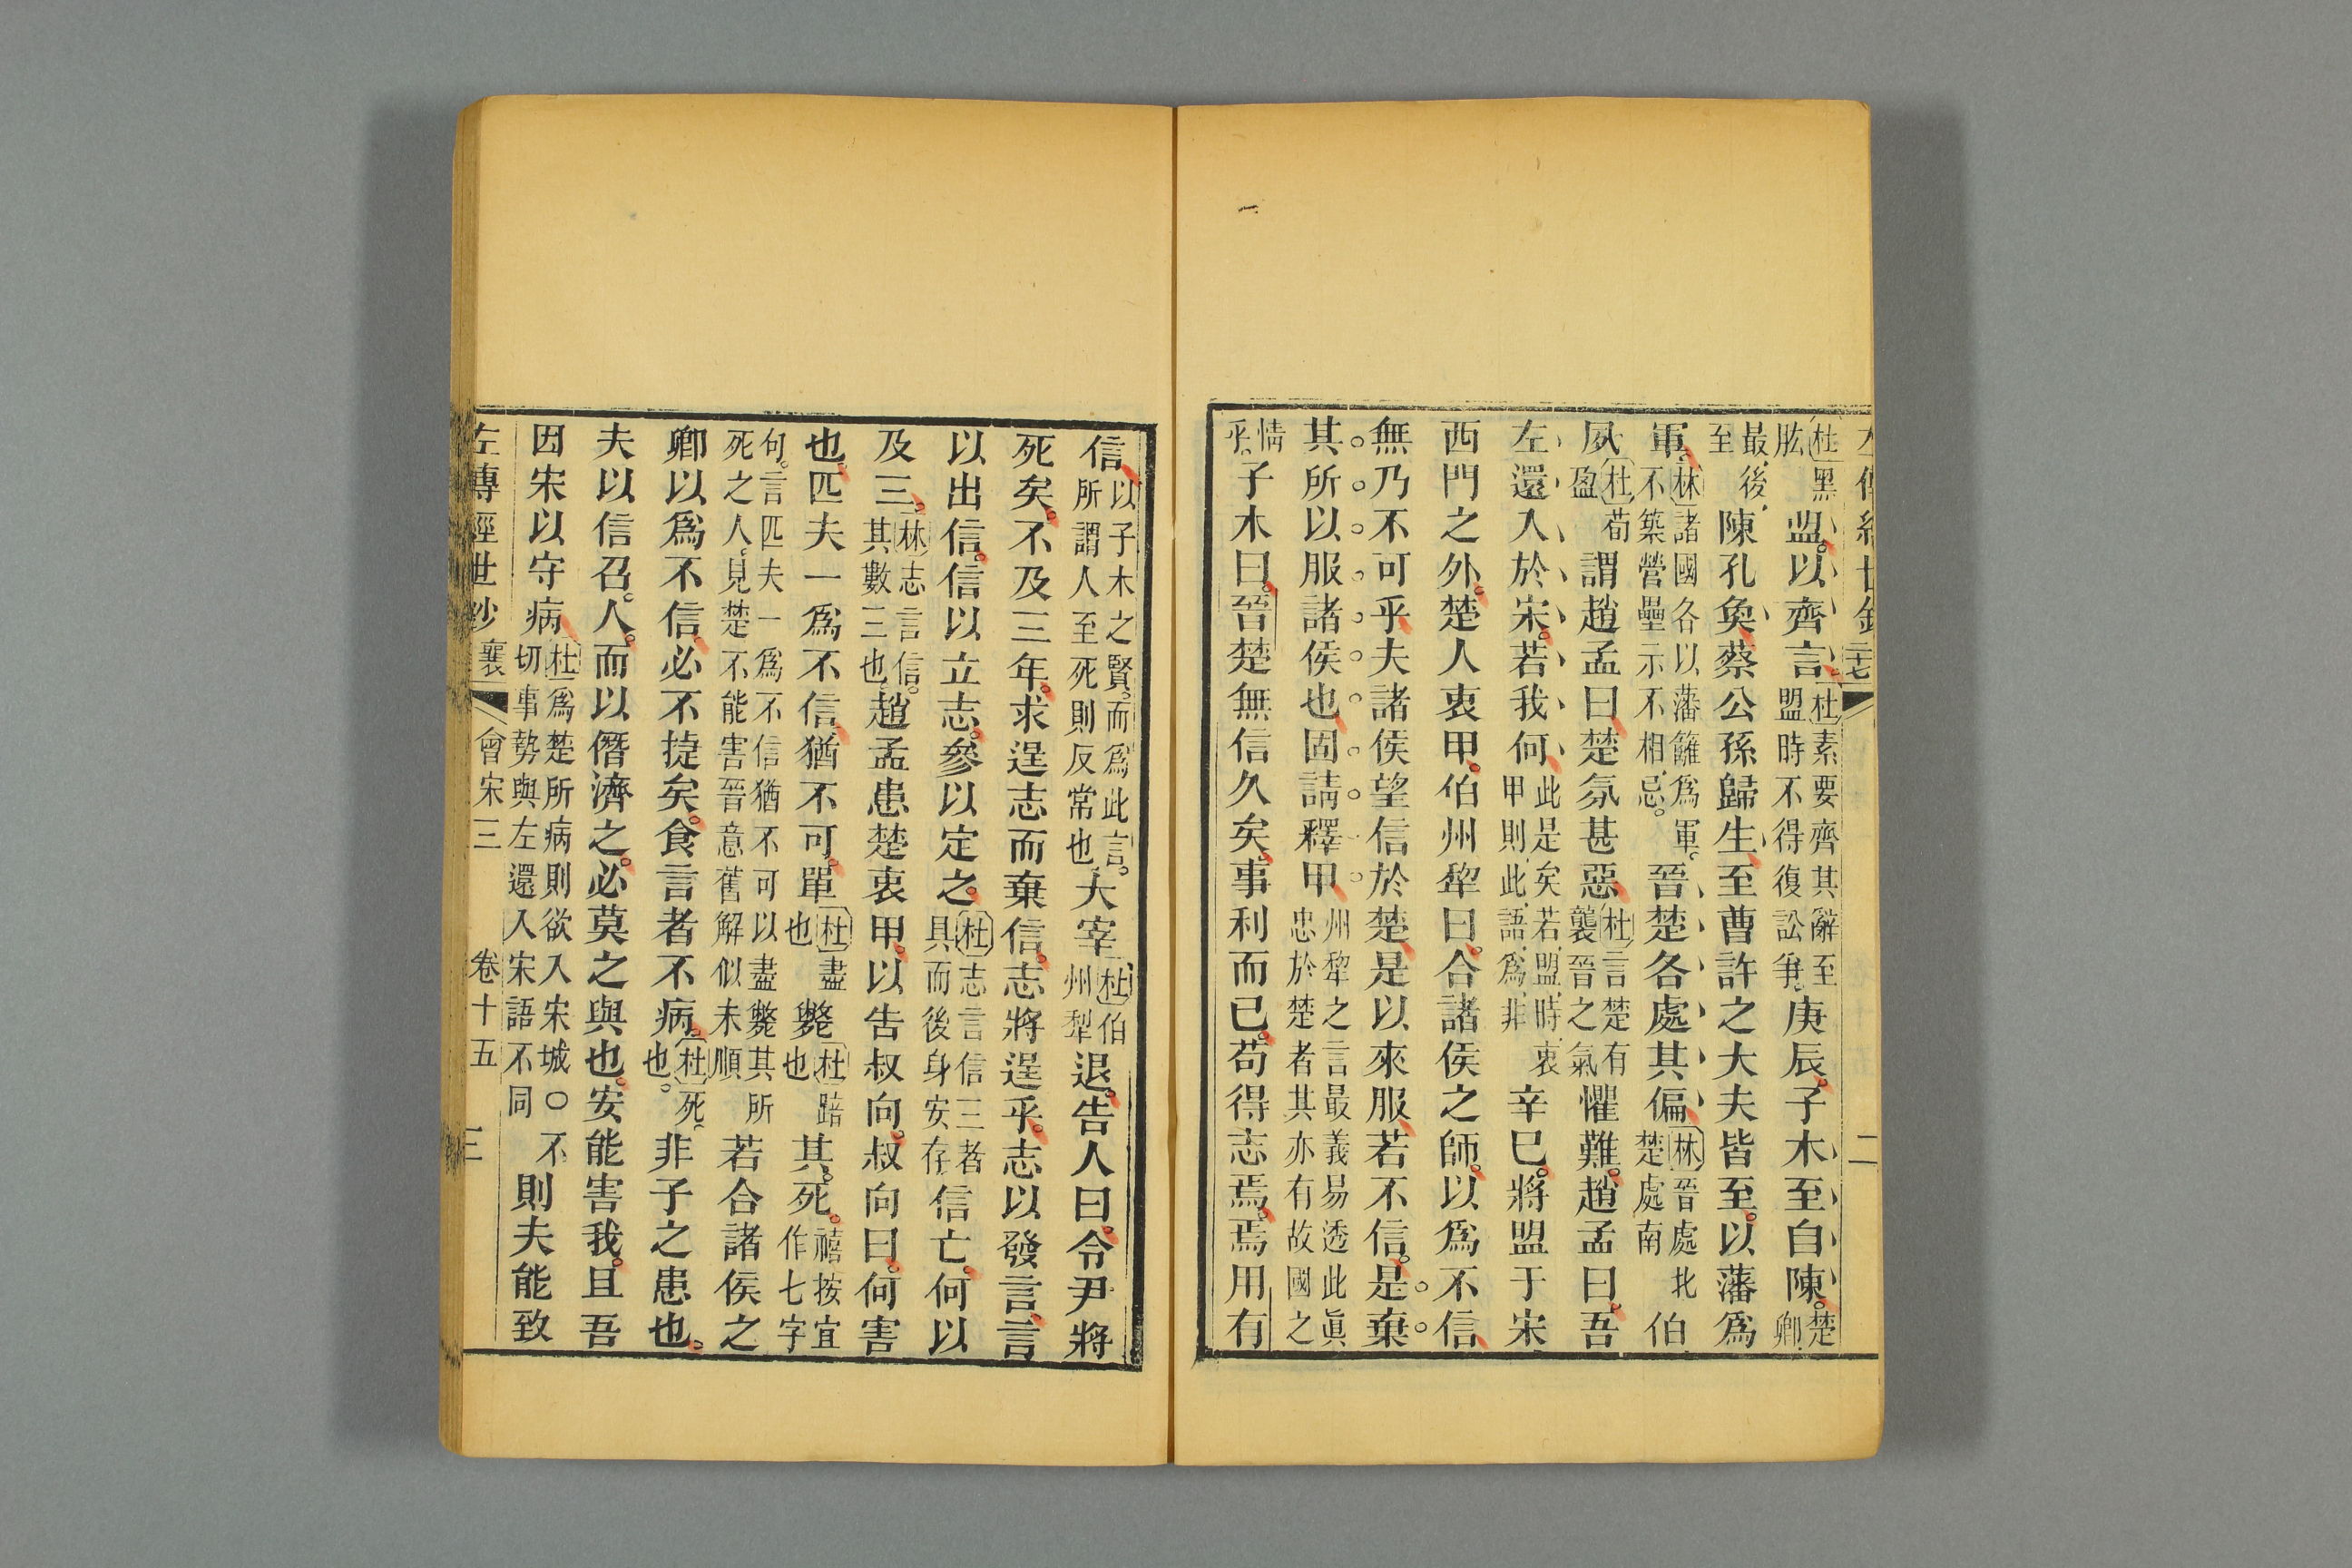 杜黑肱盟以齊言杜素要齊其辭至盟時不得復訟爭庚辰子木至自陳楚卿
最後至陳孔奐蔡公孫歸生至曹許之大夫皆至以藩爲
軍林諸國各以藩籬爲軍不築營壘示不相忌晉楚各處其偏林晉處北楚處南伯
夙杜荀盈謂趙孟曰楚氛甚惡杜言楚有襲晉之氣懼難趙孟曰吾
左還入於宋若我何此是矣若盟時衷甲則此語爲非辛巳將盟于宋
西門之外楚人衷甲伯州犂曰合諸侯之師以爲不信
無乃不可乎夫諸侯望信於楚是以來服若不信是棄
其所以服諸侯也固請釋甲州犂之言最義易透此眞忠於楚者其亦有故國之
情乎子木曰晉楚無信久矣事利而已苟得志焉焉用有
信以子木之賢而爲此言所謂人至死則反常也大宰杜伯州犁退告人曰令尹將
死矣不及三年求逞志而棄信志將逞乎志以發言言
以出信信以立志參以定之杜志言信三者具而後身安存信亡何以
及三林志言信其數三也趙孟患楚衷甲以告叔向叔向曰何害
也匹夫一爲不信猶不可單杜盡也斃杜踣也其死禧按宜作七字
句言匹夫一爲不信猶不可以盡斃其所死之人見楚不能害晉意舊解似未順若合諸侯之
卿以爲不信必不捷矣食言者不病杜死也非子之患也
夫以信召人而以僭濟之必莫之與也安能害我且吾
因宋以守病杜爲楚所病則欲入宋城○不切事勢與左還入宋語不同則夫能致
左傳經世鈔 襄 會宋三 卷十五 三